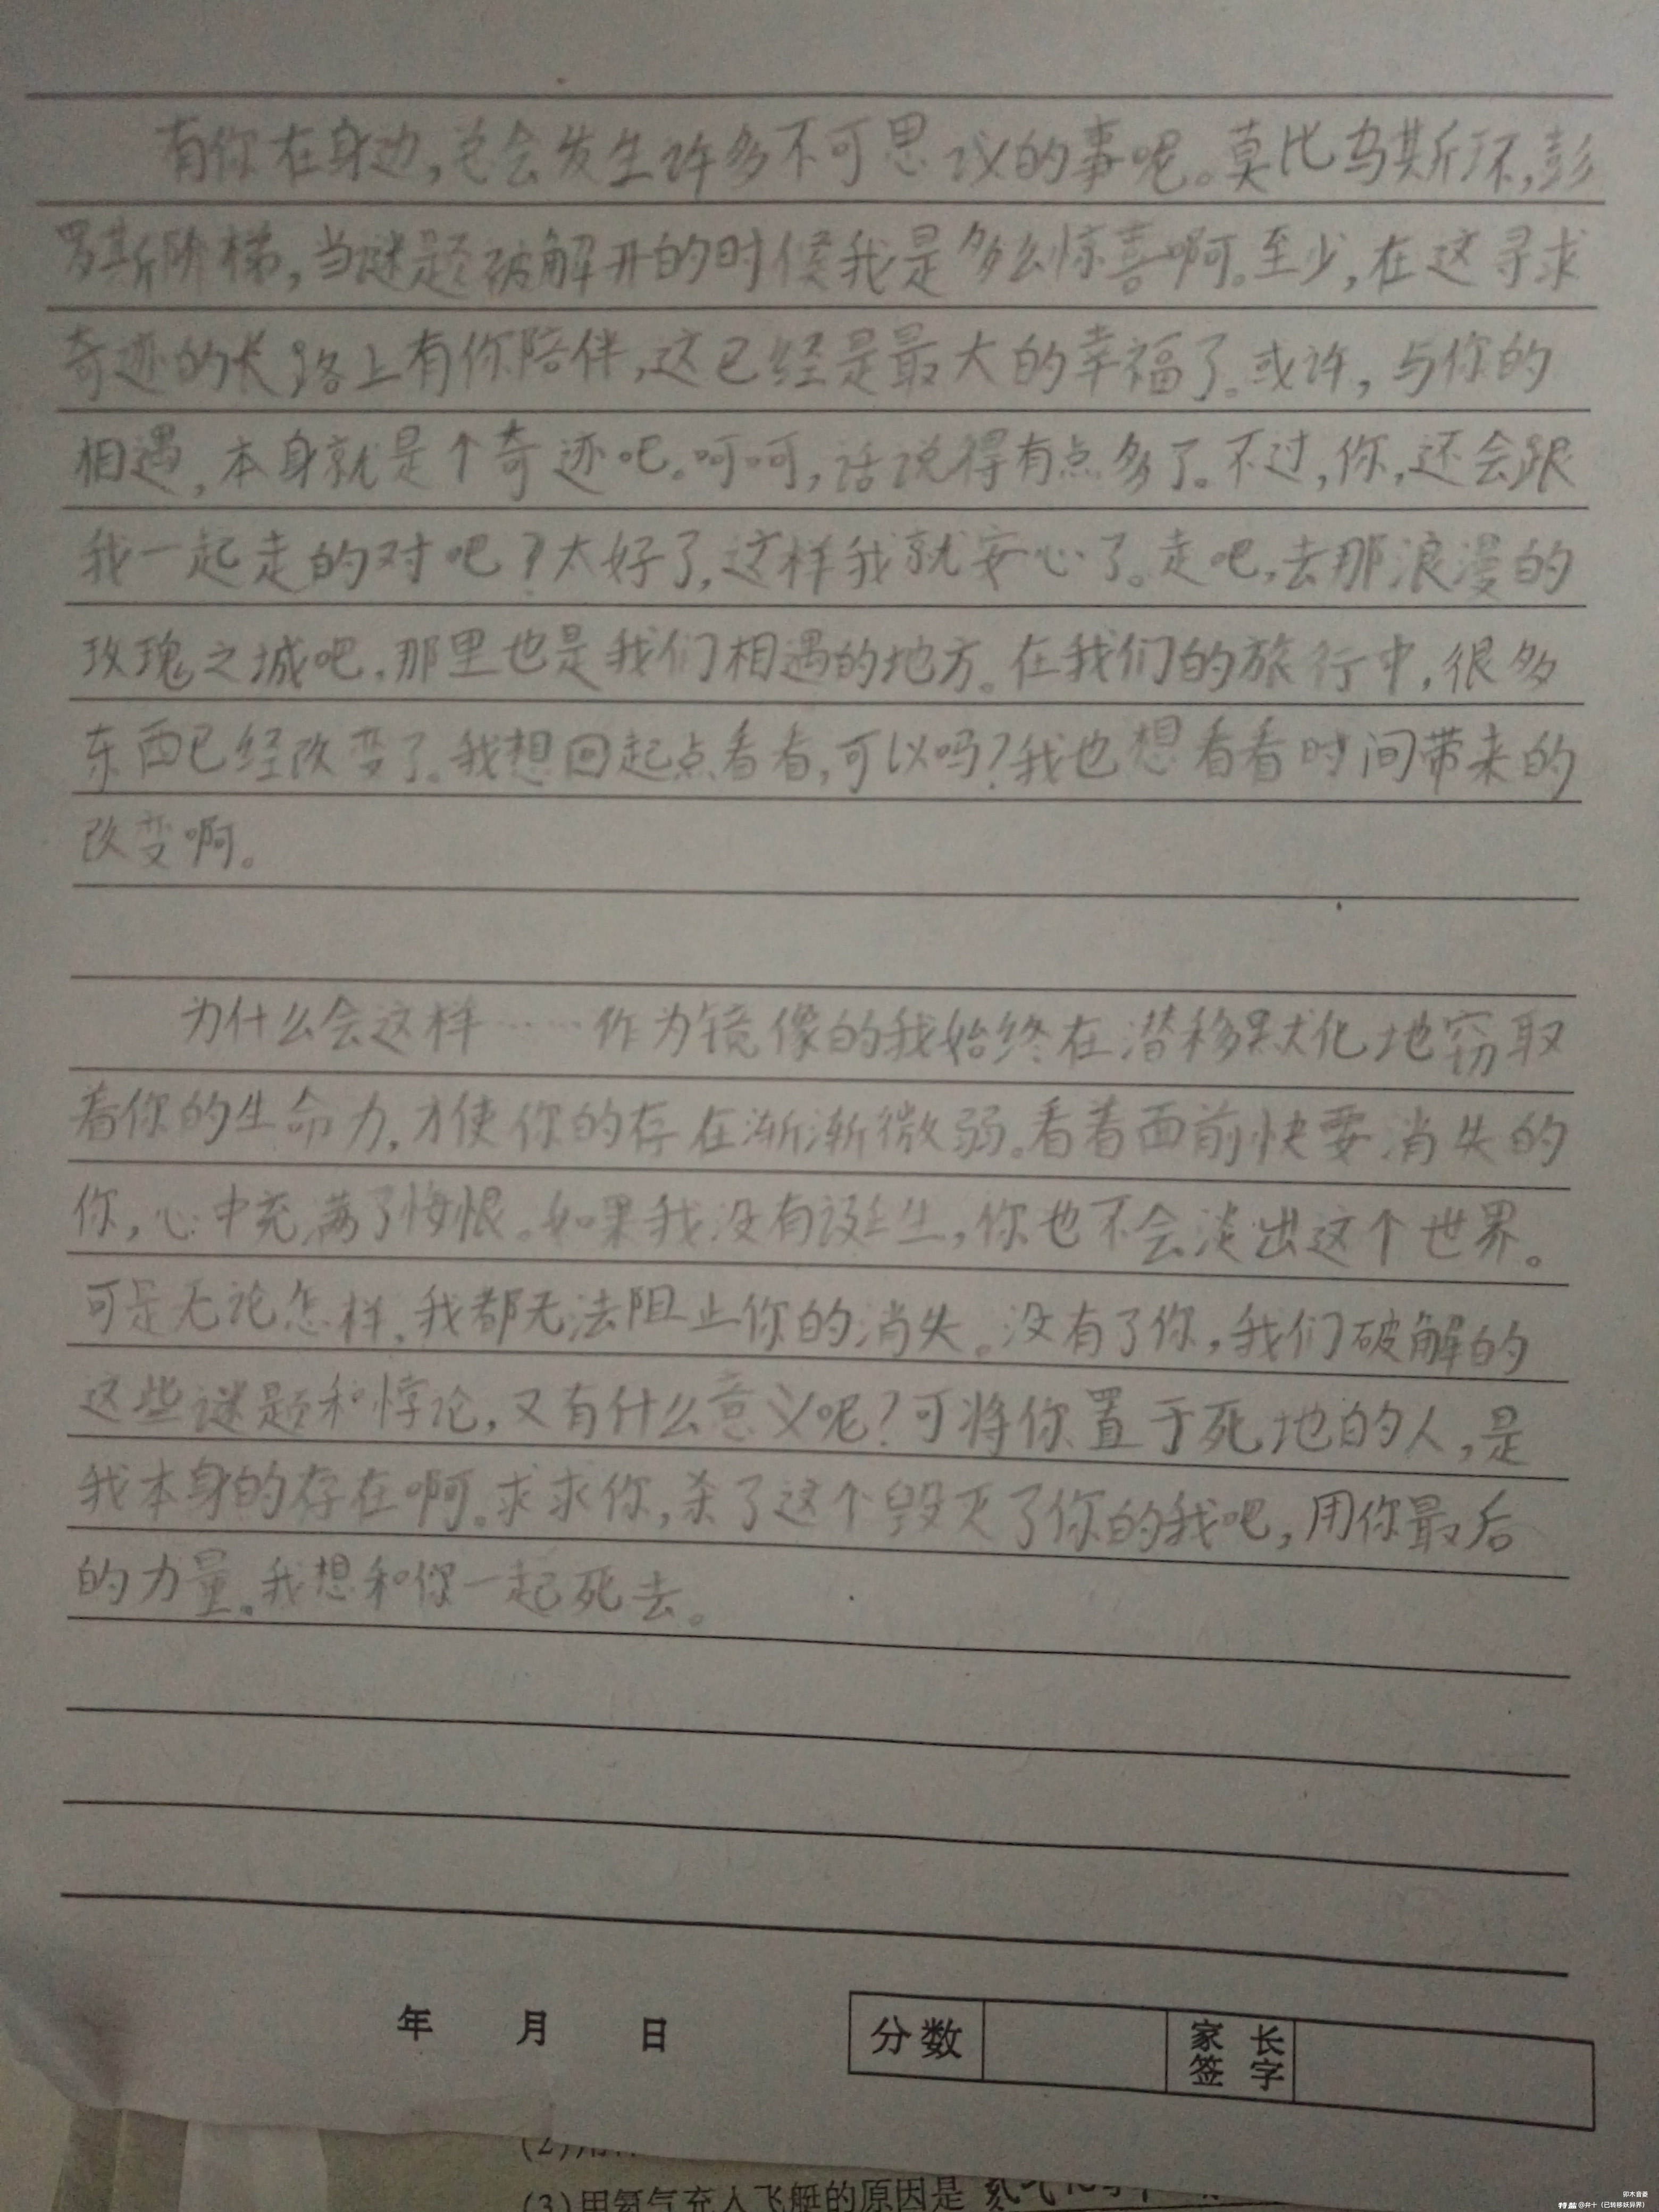 有你在身边,总会发生许多不可思议的事呢。莫比乌斯环,彭
罗斯阶梯,当谜题被解开的时候我是多么惊喜啊。至少,在这寻求
奇迹的长路上有你陪伴,这已经是最大的幸福了。或许,与你的
相遇,本身就是个奇迹吧。呵呵,话说得有点多了。不过,你,还会跟
我一起走的对吧?太好了,这样我就安心了。走吧,去那浪漫的
玫瑰之城吧,那里也是我们相遇的地方。在我们的旅行中,很多
东西已经改变了。我想回起点看看,可以吗?我也想看看时间带来的
改变啊。
为什么会这样……作为镜像的我始终在潜移默化地窃取
着你的生命力,才使你的存在渐渐微弱。看着面前快要消失的
你,心中充满了悔恨。如果我没有诞生,你也不会淡出这个世界。
可是无论怎样,我都无法阻止你的消失。没有了你,我们破解的
这些谜题和悖论,又有什么意义呢?可将你置于死地的人,是
我本身的存在啊。求求你,杀了这个毁灭了你的我吧,用你最后
的力量。我想和你一起死去。
年 月 日
分数
家长
签字
(3)用氦气充入飞艇的原因是
卯木音菱
特盐@弁十(已转移妖异界)